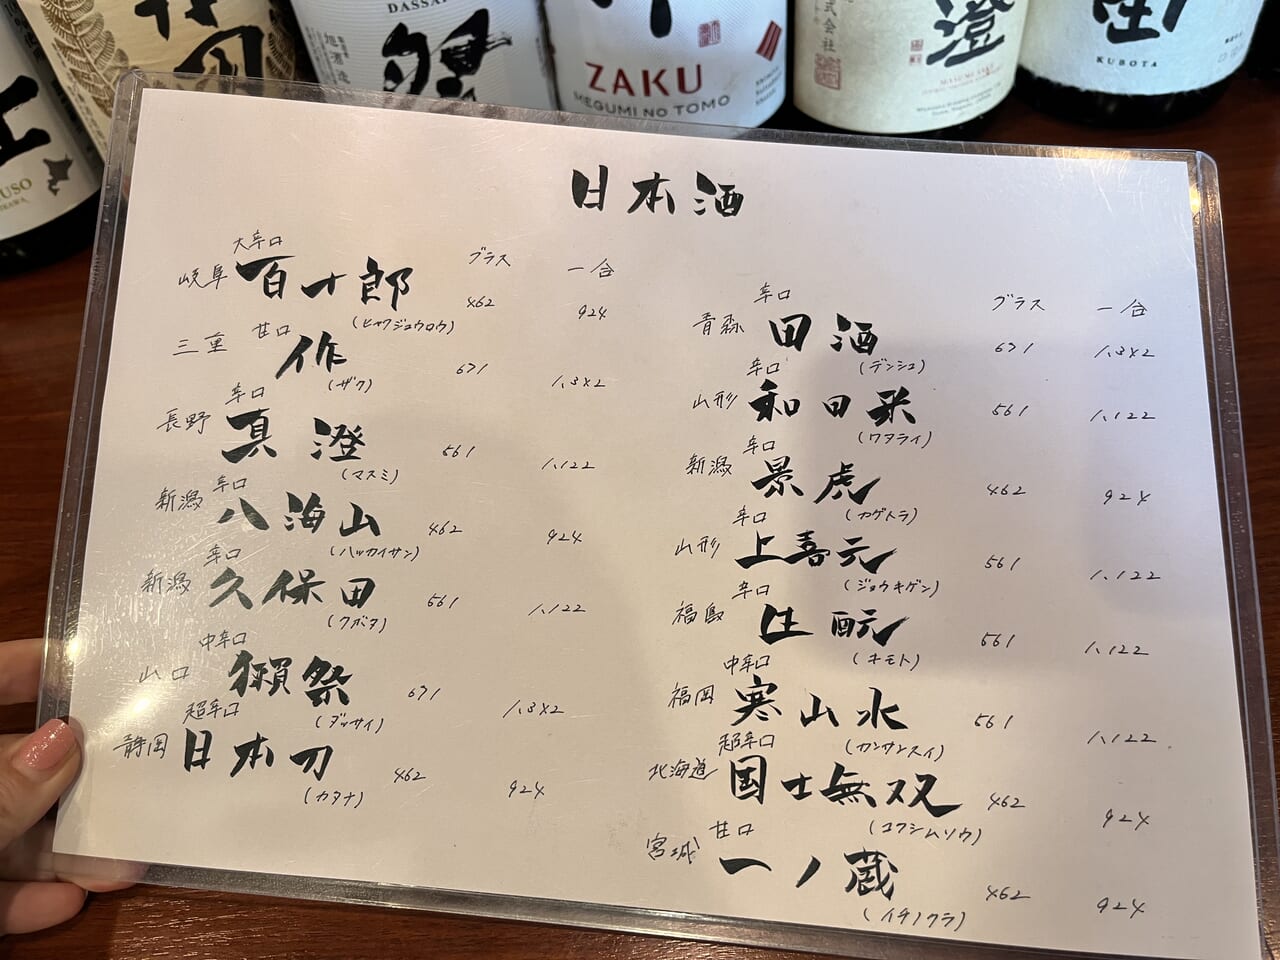 DASSAI
旭酒造
ZAKU
MEGUMI NO TOMO
式会社
澄
MASUMI SAKE
KUBOTA
日本酒
グラス 一合
大辛口
岐阜 百十郎 (ヒャクジュウロウ) 462 924
甘口
三重 作 (ザク) 671 1,342
辛口
長野 真澄 (マスミ) 561 1,122
辛口
新潟 八海山 (ハッカイサン) 462 924
辛口
新潟 久保田 (クボタ) 561 1,122
中辛口
山口 獺祭 (ダッサイ) 671 1,342
超辛口
静岡 日本刀 (カタナ) 462 924
グラス 一合
辛口
青森 田酒 (デンシュ) 671 1,342
辛口
山形 和田来 (ワタライ) 561 1,122
辛口
新潟 景虎 (カゲトラ) 462 924
辛口
山形 上喜元 (ジョウキゲン) 561 1,122
辛口
福島 生酛 (キモト) 561 1,122
中辛口
福岡 寒山水 (カンサンスイ) 561 1,122
超辛口
北海道 国士無双 (コクシムソウ) 462 924
甘口
宮城 一ノ蔵 (イチノクラ) 462 924